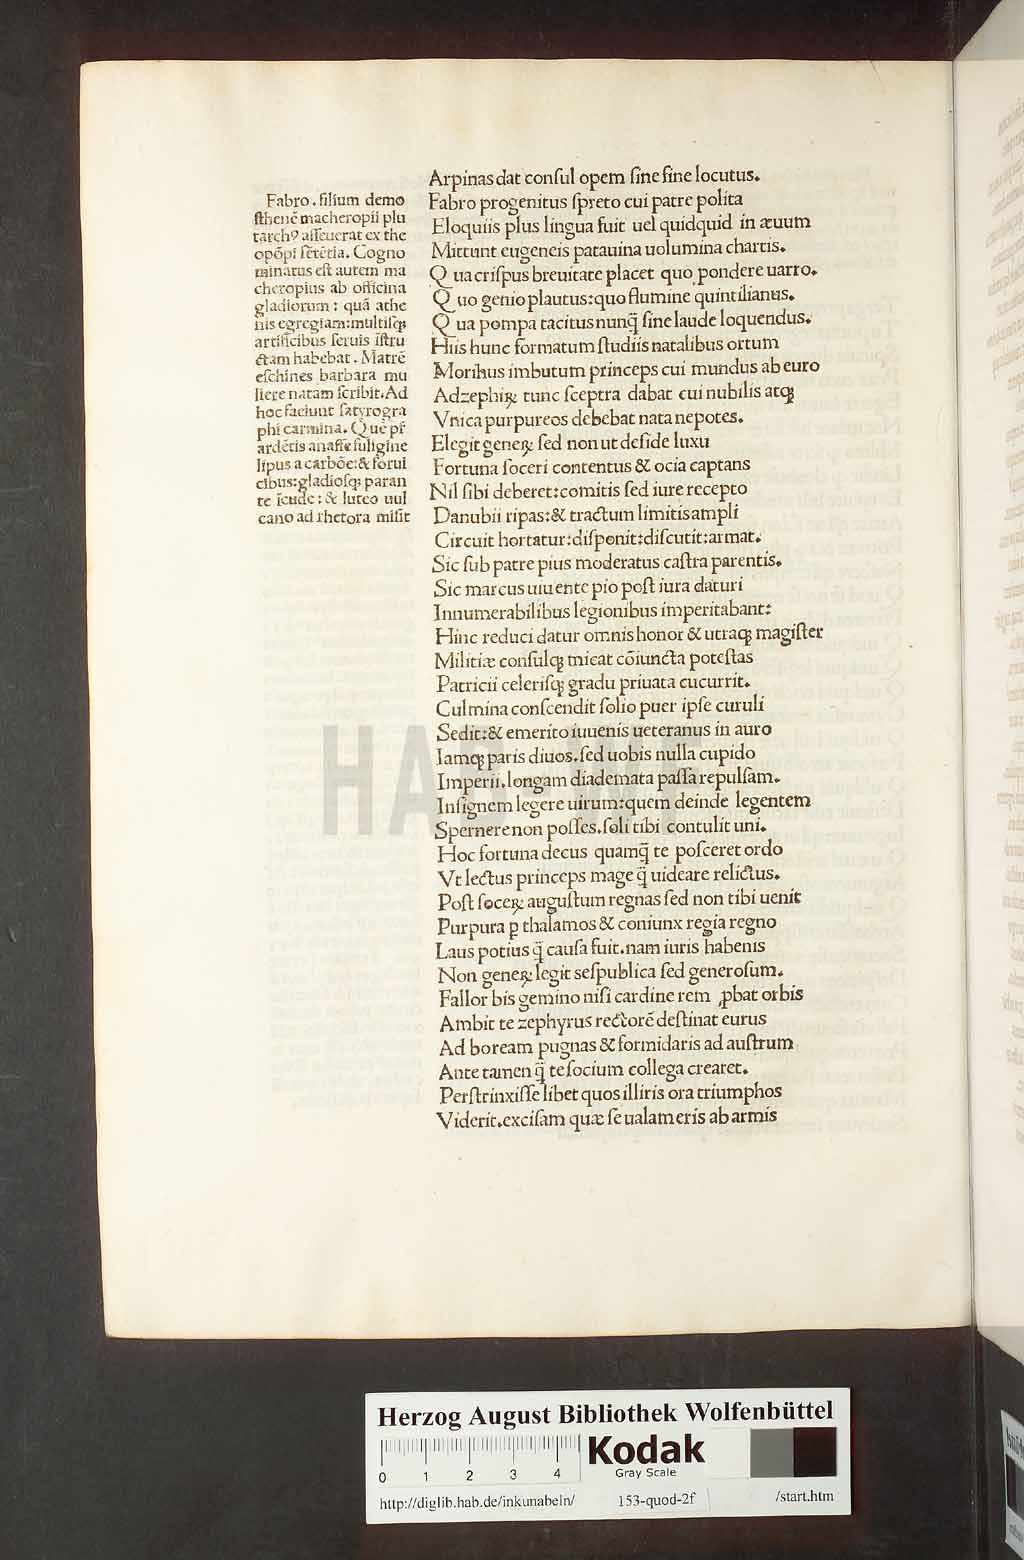 Fabro . filium demo
ſthenē macheropii plu
tarchꝰ aſſeuerat ex the
opōpi ſētētia. Cogno
minatus eſt autem ma
cheropius ab officina
gladiorum : quā athe
nis egregiam:multiſqꝫ
artificibus ſeruis īſtru
ctam habebat . Matrē
eſchines barbara mu
liere natam ſcribit. Ad
hoc faciunt ſatyrogra
phi carmina. Quē pr̄
ardētis anaſſe fuligine
lipus a carbōe:& forui
cibus:gladioſqꝫ paran
te īcude : & luteo uul
cano ad rhetora miſit
Arpinas dat conſul opem ſine fine locutus.
Fabro progenitus ſpreto cui patre polita
Eloquiis plus lingua fuit uel quidquid in æuum
Mittunt eugeneis patauina uolumina chartis.
Qua criſpus breuitate placet quo pondere uarro.
Quo genio plautus:quo flumine quintilianus.
Qua pompa tacitus nunq̄ ſine laude loquendus.
Hiis hunc formatum ſtudiis natalibus ortum
Moribus imbutum princeps cui mundus ab euro
Ad zephiꝝ tunc ſceptra dabat cui nubilis atqꝫ
Vnica purpureos debebat nata nepotes.
Elegit geneꝝ ſed non ut deſide luxu
Fortuna ſoceri contentus & ocia captans
Nil ſibi deberet:comitis ſed iure recepto
Danubii ripas:& tractum limitis ampli
Circuit hortatur:diſponit:diſcutit:armat.
Sic ſub patre pius moderatus caſtra parentis.
Sic marcus uiuente pio poſt iura daturi
Innumerabilibus legionibus imperitabant:
Hinc reduci datur omnis honor & utraqꝫ magiſter
Militiæ conſulqꝫ micat cōiuncta poteſtas
Patricii celeriſqꝫ gradu priuata cucurrit.
Culmina conſcendit ſolio puer ipſe curuli
Sedit:& emerito iuuenis ueteranus in auro
Iamqꝫ paris diuos.ſed uobis nulla cupido
Imperii.longam diademata paſſa repulſam.
Inſignem legere uirum:quem deinde legentem
Spernere non poſſes.ſoli tibi contulit uni.
Hoc fortuna decus quamq̄ te poſceret ordo
Vt lectus princeps mage q̄ uideare relictus.
Poſt ſoceꝝ auguſtum regnas ſed non tibi uenit
Purpura ꝑ thalamos & coniunx regia regno
Laus potius q̄ cauſa fuit.nam iuris habenis
Non geneꝝ legit reſpublica ſed generoſum.
Fallor bis gemino niſi cardine rem ꝓbat orbis
Ambit te zephyrus rectorē deſtinat eurus
Ad boream pugnas & formidaris ad auſtrum
Ante tamen q̄ te ſocium collega crearet.
Perſtrinxiſſe libet quos illiris ora triumphos
Viderit.exciſam quæ ſe ualameris ab armis
HAB WF
Herzog August Bibliothek Wolfenbüttel
Kodak
Gray Scale
0 1 2 3 4
http://diglib.hab.de/inkunabeln/ 153-quod-2f /start.htm